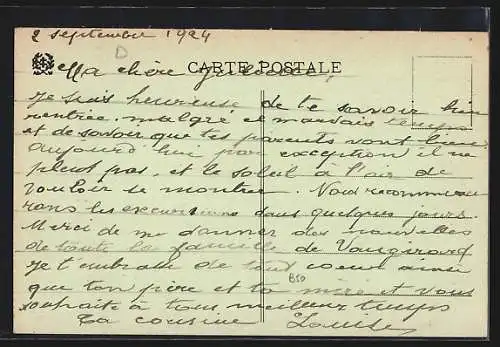 2 septembre 1924
D
CARTE POSTALE
Ma chère
Je suis heureuse de te savoir bien
rentrée. malgré ce mauvais temps
et de savoir que tes parents vont bien
aujourd'hui par exception il ne
pleut pas. et le soleil à l'air de
vouloir se montrer. Nous recommence
rons les excursions dans quelques jours.
Merci de me donner des nouvelles
de toute la famille de Vaugirard
Je t'embrasse de tout coeur ainsi
que ton père et ta mère et vous
souhaite à tous meilleur temps
Ta cousine Louise
B50